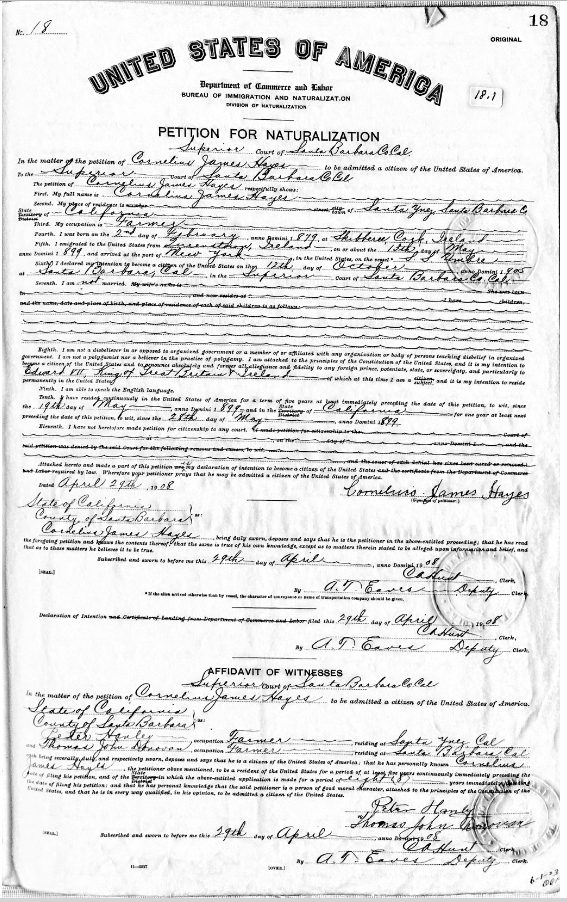 No. 18
18
ORIGINAL
UNITED STATES OF AMERICA
18.1
Department of Commerce and Labor
BUREAU OF IMMIGRATION AND NATURALIZATION
DIVISION OF NATURALIZATION
PETITION FOR NATURALIZATION
Superior Court of Santa Barbara Co Cal
In the matter of the petition of Cornelius James Hayes to be admitted a citizen of the United States of America.
To the Superior Court of Santa Barbara Co Cal
The petition of Cornelius James Hayes respectfully shows:
First. My full name is Cornelius James Hayes
Second. My place of residence is Santa Ynez Santa Barbara Co
State Territory District of California
Third. My occupation is Farmer
Fourth. I was born on the 2nd day of February, anno Domini 1879, at Skibberee Cork, Ireland
Fifth. I emigrated to the United States from Queenstown, Ireland on or about the 13th day of May
anno Domini 1899, and arrived at the port of New York in the United States, on the vessel
Sixth. I declared my intention to become a citizen of the United States on the 12th day of October anno Domini 1905
at Santa Barbara, Cal in the Superior Court of Santa Barbara Co Cal
Seventh. I am not married. My wife's name is She was born
in and now resides at I have children,
and the name, date and place of birth, and place of residence of each of said children is as follows
Eighth. I am not a disbeliever in or opposed to organized government or a member of or affiliated with any organization or body of persons teaching disbelief in organized
government. I am not a polygamist nor a believer in the practice of polygamy. I am attached to the principles of the Constitution of the United States, and it is my intention to
become a citizen of the United States and to renounce absolutely and forever all allegiance and fidelity to any foreign prince, potentate, state, or sovereignty, and particularly to
Edward VII King of Great Britain & Ireland of which at this time I am a citizen subject, and it is my intention to reside
permanently in the United States.
Ninth. I am able to speak the English language.
Tenth. I have resided continuously in the United States for a term of five years at least immediately preceding the date of this petition, to wit, since
the 19th day of May, anno Domini 1899 and in the State Territory District of California for one year at least next
preceding the date of this petition, to wit, since the 28th day of May, anno Domini 1899.
Eleventh. I have not heretofore made petition for citizenship to any court. (I made petition for citizenship to the Court of
at , on the day of , anno Domini 1 , and the
said petition was denied by the said Court for the following reasons and causes, to wit,
and the cause of such denial has since been cured or removed.)
Attached hereto and made a part of this petition are my declaration of intention to become a citizen of the United States and the certificate from the Department of Commerce
and Labor required by law. Wherefore your petitioner prays that he may be admitted a citizen of the United States of America.
Dated April 29th, 1908
Cornelius James Hayes
(Signature of petitioner.)
State of California
County of Santa Barbara ss:
Cornelius James Hayes, being duly sworn, deposes and says that he is the petitioner in the above-entitled proceeding; that he has read
the foregoing petition and knows the contents thereof; that the same is true of his own knowledge, except as to matters therein stated to be alleged upon information and belief, and
that as to those matters he believes it to be true.
Subscribed and sworn to before me this 29th day of April, anno Domini 1908
[SEAL.]
C A Hunt, Clerk.
By A. T. Eaves Deputy Clerk.
* If the alien arrived otherwise than by vessel, the character of conveyance or name of transportation company should be given.
Declaration of Intention and Certificate of Landing from Department of Commerce and Labor filed this 29th day of April, 1908
C A Hunt, Clerk.
By A. T. Eaves Deputy Clerk.
AFFIDAVIT OF WITNESSES
Superior Court of Santa Barbara Co Cal
In the matter of the petition of Cornelius James Hayes to be admitted a citizen of the United States of America.
State of California
County of Santa Barbara ss:
Peter Hanley, occupation Farmer, residing at Santa Ynez Cal
and Thomas John Donovan, occupation Farmer, residing at Santa Barbara, Cal
each being severally, duly, and respectively sworn, deposes and says that he is a citizen of the United States of America; that he has personally known Cornelius
James Hayes, the petitioner above mentioned, to be a resident of the United States for a period of at least five years continuously immediately preceding the
date of filing his petition, and of the State Territory District in which the above-entitled application is made for a period of Eight (8) years immediately preceding
the date of filing his petition; and that he has personal knowledge that the said petitioner is a person of good moral character, attached to the principles of the Constitution of the
United States, and that he is in every way qualified, in his opinion, to be admitted a citizen of the United States.
Peter Hanly
Thomas John Donovan
Subscribed and sworn to before me this 29th day of April, anno Domini 1908
[SEAL.]
C A Hunt, Clerk.
By A. T. Eaves Deputy Clerk.
[OVER.]